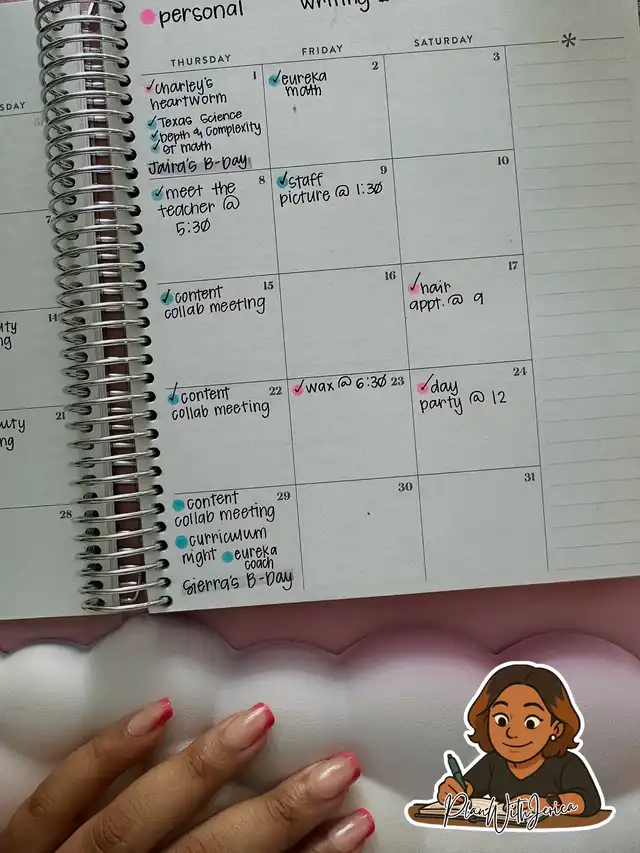 personal
writing
SDAY
THURSDAY
FRIDAY
SATURDAY
*
1
✓charley's
heartworm
✓Texas Science
✓Depth & Complexity
✓GT math
Jaira's B-Day
2
✓eureka
math
3
7
8
✓meet the
teacher @
5:30
9
✓staff
picture @ 1:30
10
14
uty
ng
15
✓content
collab meeting
16
17
✓hair
appt. @ 9
21
uty
ng
22
✓content
collab meeting
✓wax @ 6:30 23
24
✓day
party @ 12
28
29
content
collab meeting
curriculum
night eureka
coach
Sierra's B-Day
30
31
PlanWithJerica